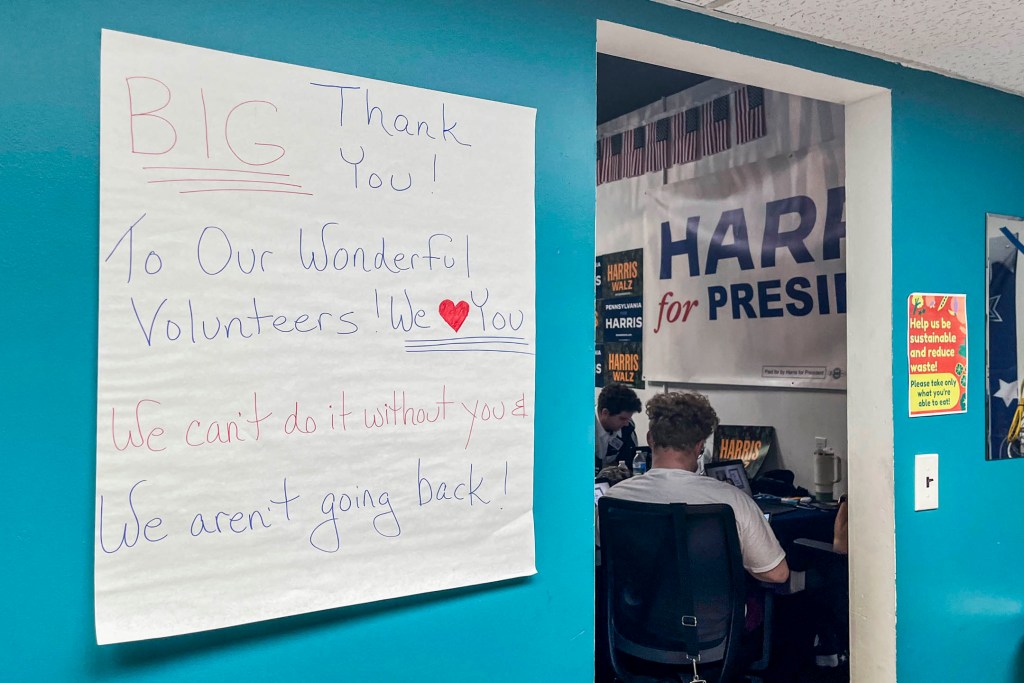 BIG Thank
You!
To Our Wonderful
Volunteers! We ♥ You
We can't do it without you &
We aren't going back!
HARR
for PRESI
HARRIS
WALZ
PENNSYLVANIA
HARRIS
HARRIS
WALZ
HARRIS
Paid for by Harris for President
Help us be
sustainable
and reduce
waste!
Please take only
what you're
able to eat!